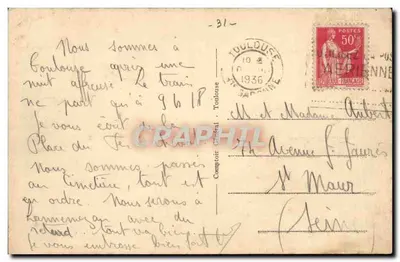 -31-
Nous sommes à
Toulouse après une
nuit affreuse. Le train
ne part qu'à 9 h 18
Je vous écris de la
Place du
Nous sommes passés
au cimetière, tout est
en ordre. Nous serons à
Lannemezan avec du
retard... tout va bien
Je vous embrasse bien fort
CPARCHAMA
Comptoir Général - Toulouse
TOULOUSE
1936
POSTES
50c
M et Madame Aubert
Avenue J. Jaurès
St Maur
(Seine)